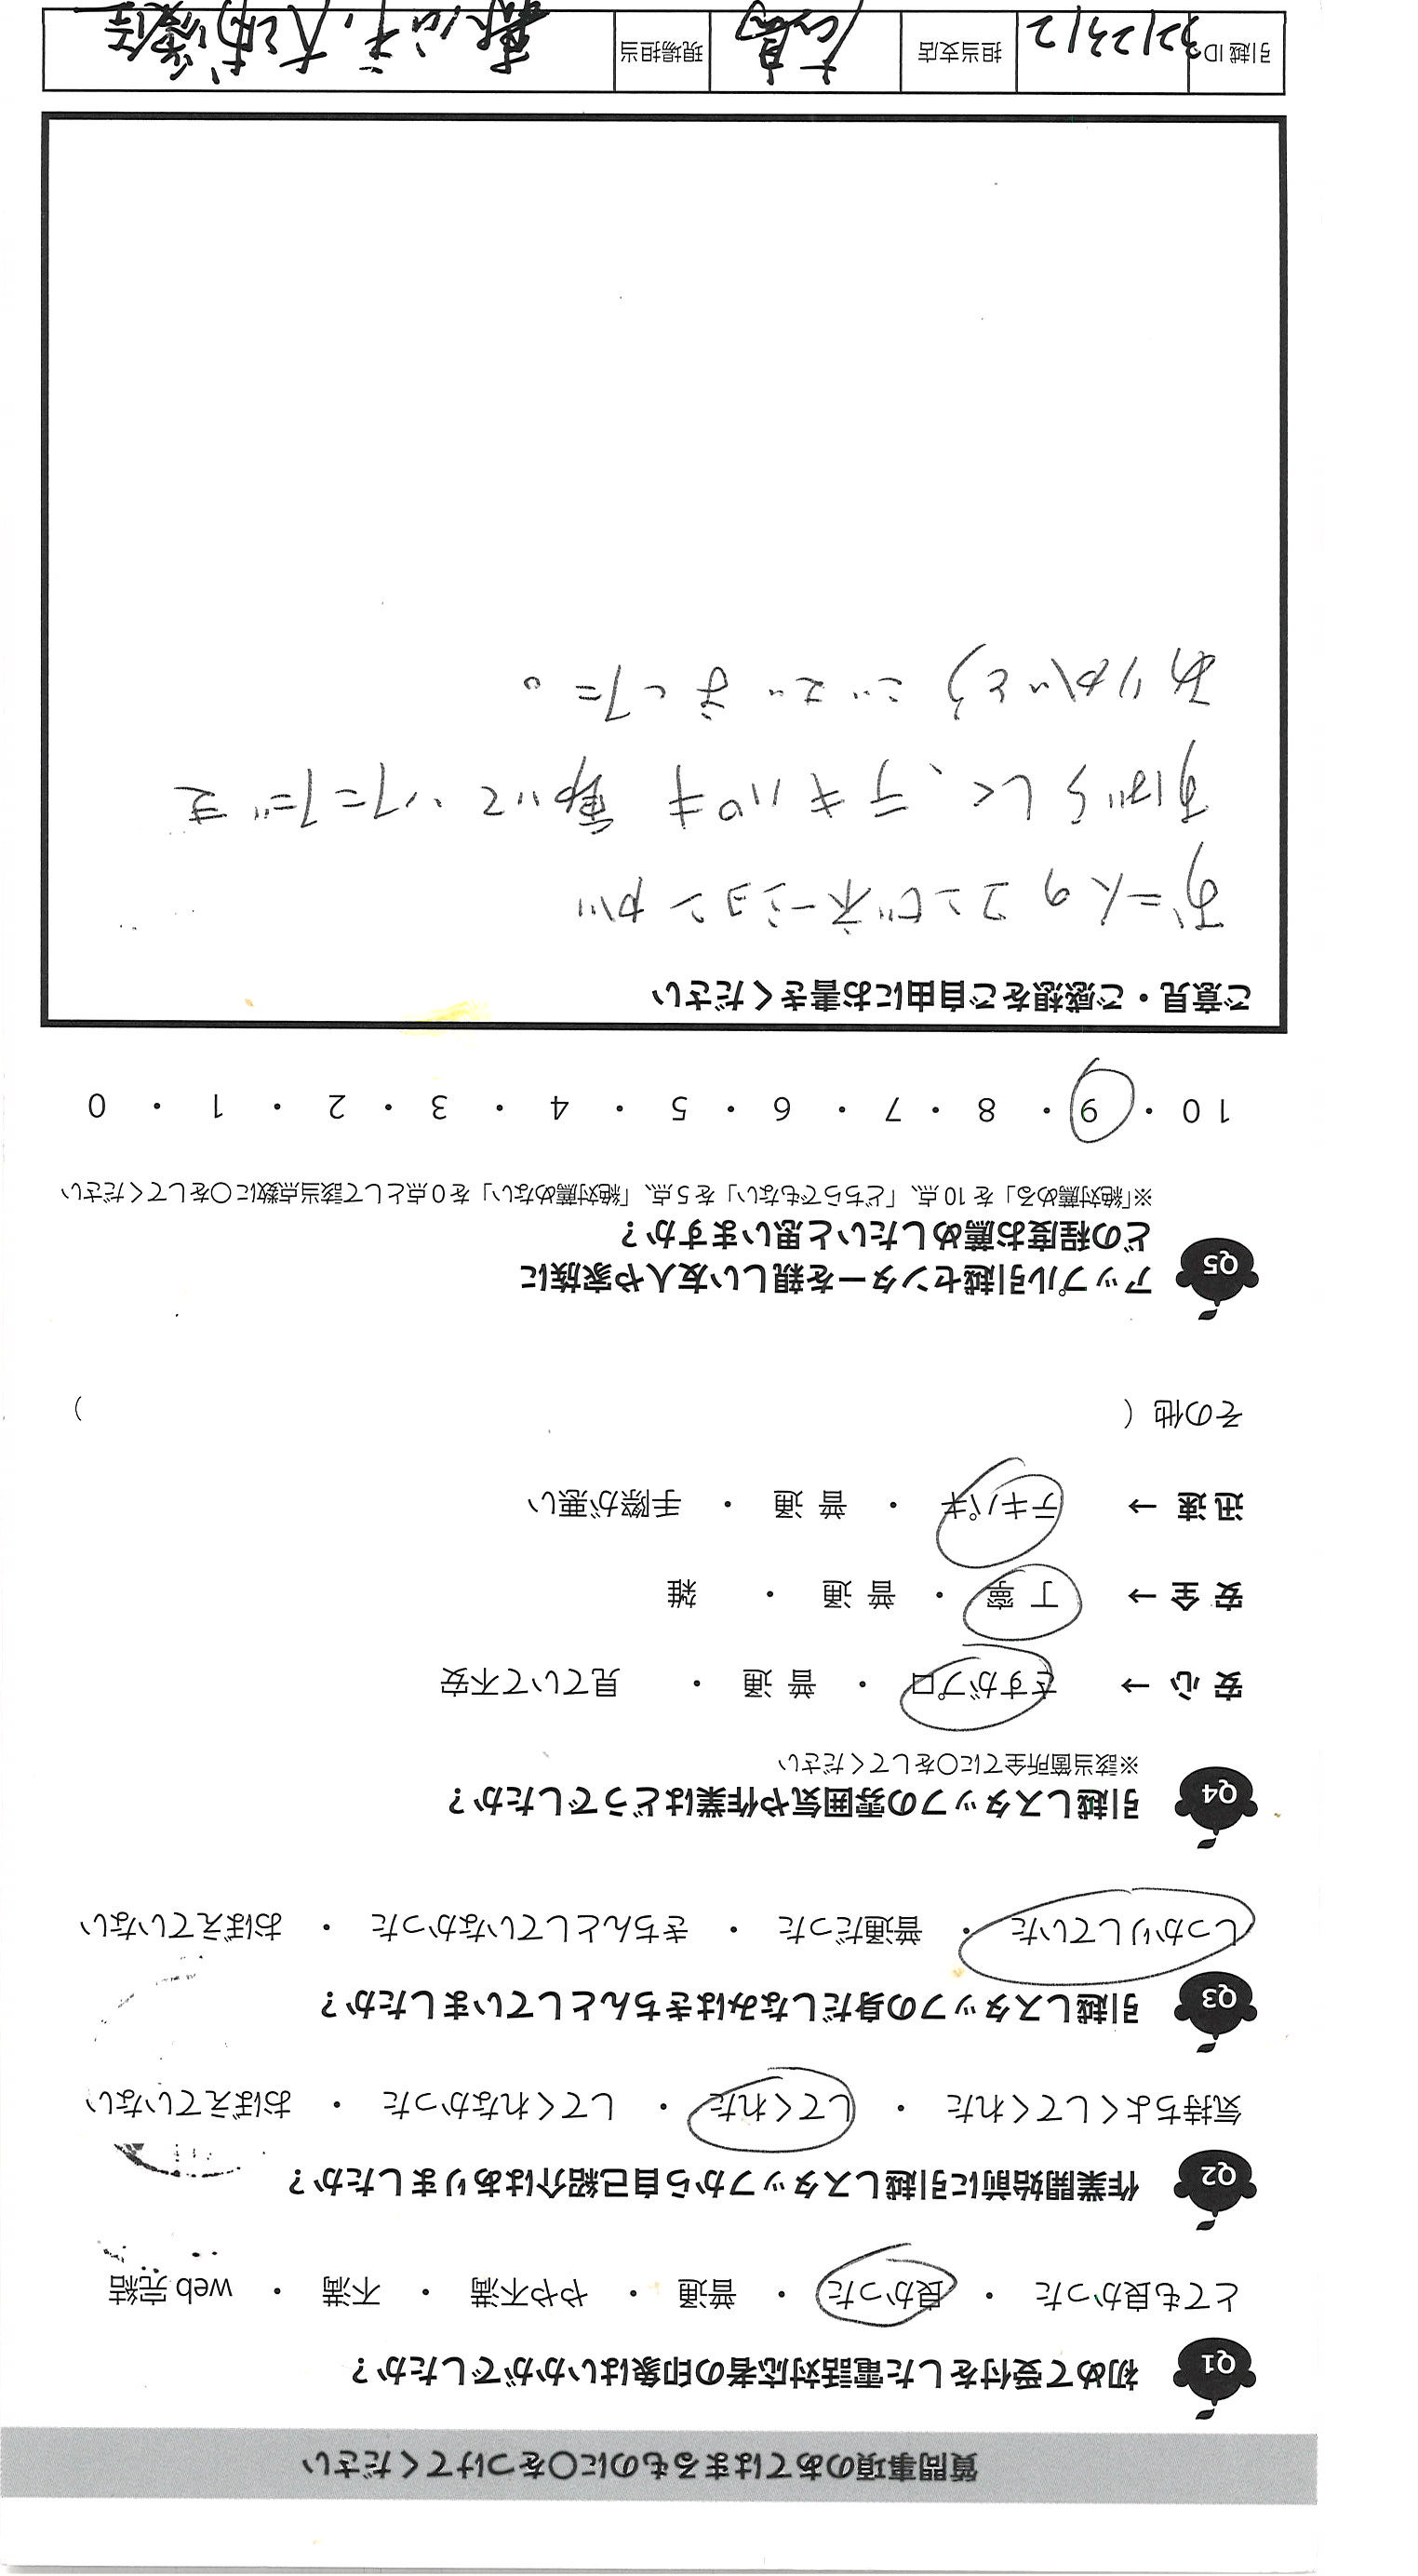 質問事項のあてはまるものに〇をつけてください
Q1 初めて受付をした電話対応者の印象はいかがでしたか？
とても良かった ・ 良かった ・ 普通 ・ やや不満 ・ 不満 ・ web 完結
Q2 作業開始前に引越しスタッフから自己紹介はありましたか？
気持ちよくしてくれた ・ してくれた ・ してくれなかった ・ おぼえていない
Q3 引越しスタッフの身だしなみはきちんとしていましたか？
しっかりしていた ・ 普通だった ・ きちんとしていなかった ・ おぼえていない
Q4 引越しスタッフの雰囲気や作業はどうでしたか？
※該当箇所全てに〇をしてください
安心 → さすがプロ ・ 普通 ・ 見ていて不安
安全 → 丁寧 ・ 普通 ・ 雑
迅速 → テキパキ ・ 普通 ・ 手際が悪い
その他（ ）
Q5 アップル引越センターを親しい友人や家族に
どの程度お薦めしたいと思いますか？
※「絶対薦める」を 10 点、「どちらでもない」を 5 点、「絶対薦めない」を 0 点として該当点数に〇をしてください
10 ・ 9 ・ 8 ・ 7 ・ 6 ・ 5 ・ 4 ・ 3 ・ 2 ・ 1 ・ 0
ご意見・ご感想をご自由にお書きください
お二人のコンビネーションが
すばらしく、テキパキ 動いていただき
ありがとうございました。
引越 ID 担当支店 現場担当